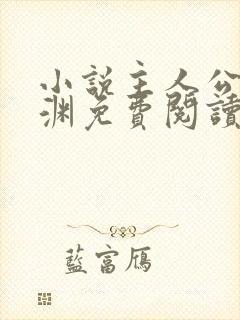 小說主人公
淵免費閱讀
藍富鴈